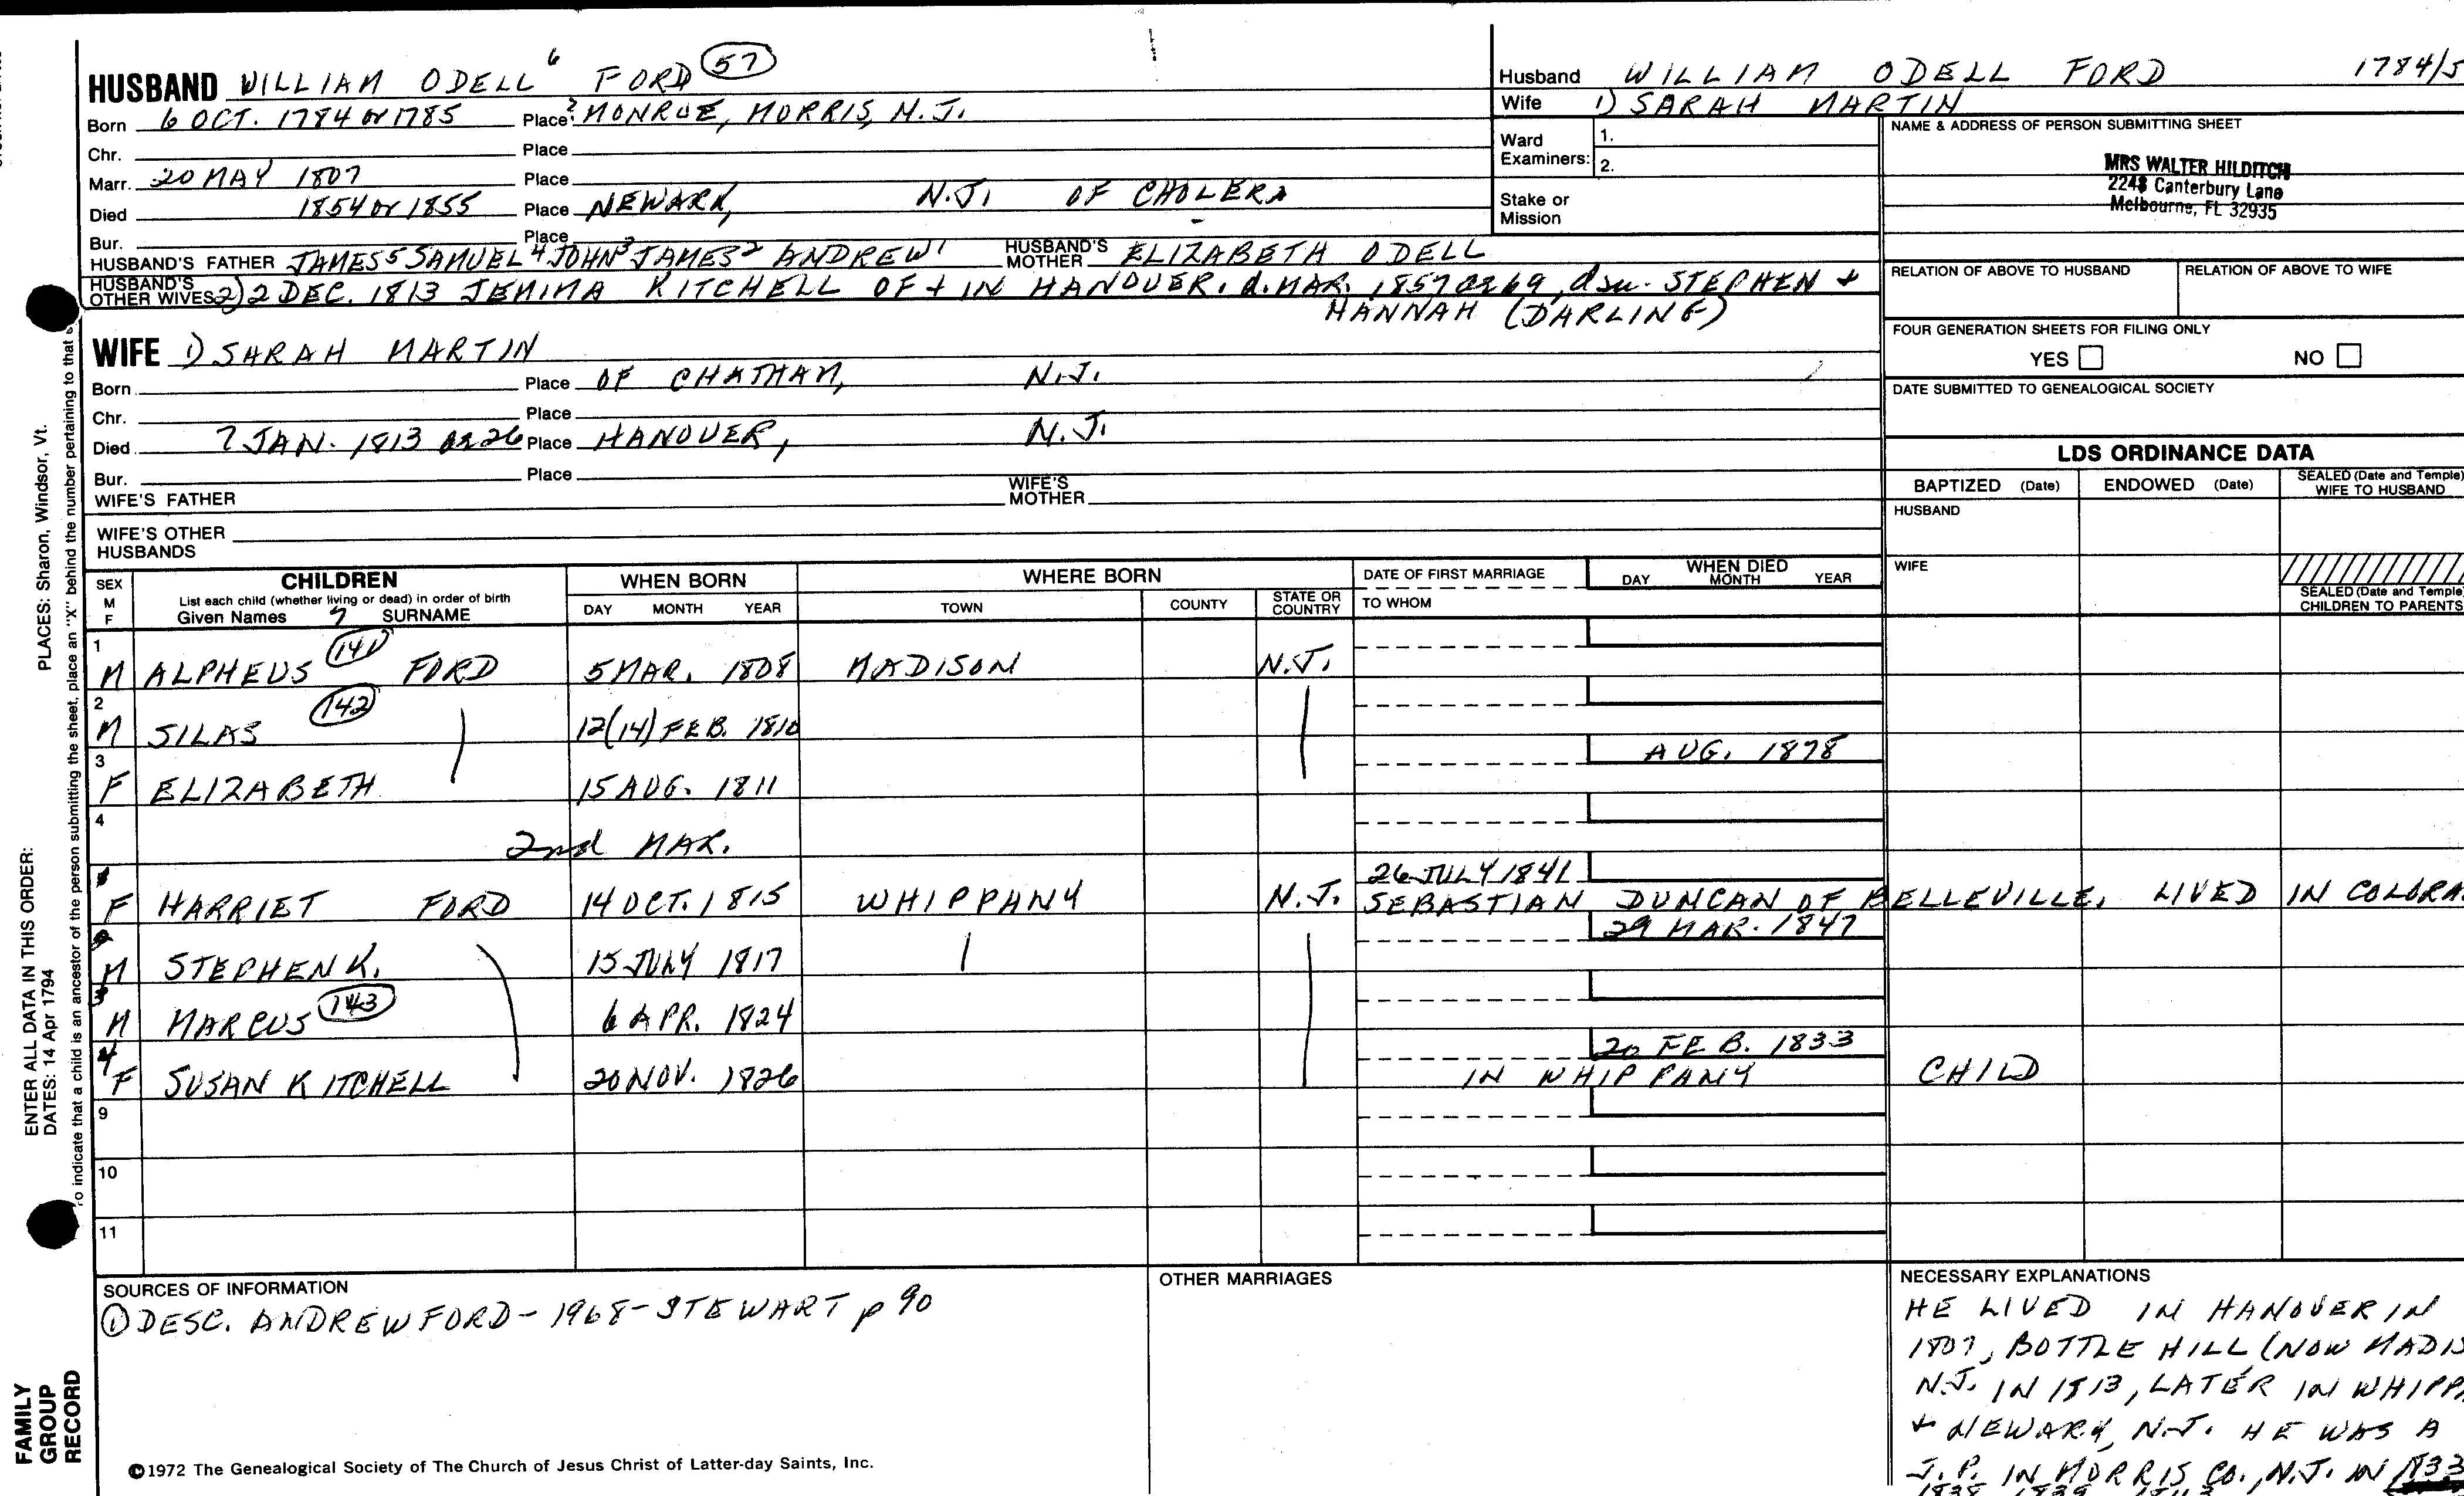 HUSBAND WILLIAM ODELL 6 FORD 57
Born 6 OCT. 1784 or 1785 Place ? MONROE, MORRIS, N.J.
Chr. Place
Marr. 20 MAY 1807 Place
Died 1854 or 1855 Place NEWARK, N.J. OF CHOLERA
Bur. Place
HUSBAND'S FATHER JAMES 5 SAMUEL 4 JOHN 3 JAMES 2 ANDREW 1 HUSBAND'S MOTHER ELIZABETH ODELL
HUSBAND'S OTHER WIVES 2) 2 DEC. 1813 JEMIMA KITCHELL OF + IN HANOVER. d. MAR. 1857 or 69, dau. STEPHEN +
HANNAH (DARLING)
WIFE 1) SARAH MARTIN
Born Place OF CHATHAM, N.J.
Chr. Place
Died 7 JAN. 1813 or 26 Place HANOVER, N.J.
Bur. Place
WIFE'S FATHER WIFE'S MOTHER
WIFE'S OTHER HUSBANDS
Husband WILLIAM ODELL FORD 1784/5
Wife 1) SARAH MARTIN
Ward Examiners: 1.
2.
Stake or Mission
NAME & ADDRESS OF PERSON SUBMITTING SHEET
MRS WALTER HILDITCH
2248 Canterbury Lane
Melbourne, FL 32935
RELATION OF ABOVE TO HUSBAND RELATION OF ABOVE TO WIFE
FOUR GENERATION SHEETS FOR FILING ONLY
YES NO
DATE SUBMITTED TO GENEALOGICAL SOCIETY
LDS ORDINANCE DATA
BAPTIZED (Date) ENDOWED (Date) SEALED (Date and Temple) WIFE TO HUSBAND
HUSBAND
WIFE
SEALED (Date and Temple) CHILDREN TO PARENTS
SEX M F CHILDREN WHEN BORN WHERE BORN DATE OF FIRST MARRIAGE WHEN DIED
List each child (whether living or dead) in order of birth DAY MONTH YEAR TOWN COUNTY STATE OR COUNTRY TO WHOM DAY MONTH YEAR
Given Names 7 SURNAME
1 M ALPHEUS 141 FORD 5 MAR. 1808 MADISON N.J.
2 M SILAS 142 12(14) FEB. 1810
3 F ELIZABETH 15 AUG. 1811 AUG. 1878
4 2nd MAR.
F HARRIET FORD 14 OCT. 1815 WHIPPANY N.J. 26 JULY 1841
SEBASTIAN DUNCAN OF BELLEVILLE, LIVED IN COLORA
M STEPHEN K. 15 JULY 1817 29 MAR. 1847
3 M MARCUS 143 6 APR. 1824
4 F SUSAN KITCHELL 20 NOV. 1826 20 FEB. 1833
IN WHIPPANY CHILD
9
10
11
SOURCES OF INFORMATION
① DESC. ANDREW FORD - 1968 - STEWART p 90
OTHER MARRIAGES
NECESSARY EXPLANATIONS
HE LIVED IN HANOVER IN
1807, BOTTLE HILL (NOW MADIS
N.J. IN 1813, LATER IN WHIPPA
+ NEWARK, N.J. HE WAS A
J.P. IN MORRIS CO., N.J. IN 1833
1838, 1839, 1843
©1972 The Genealogical Society of The Church of Jesus Christ of Latter-day Saints, Inc.
PLACES: Sharon, Windsor, Vt.
ENTER ALL DATA IN THIS ORDER:
DATES: 14 Apr 1794
To indicate that a child is an ancestor of the person submitting the sheet, place an "X" behind the number pertaining to that
FAMILY
GROUP
RECORD